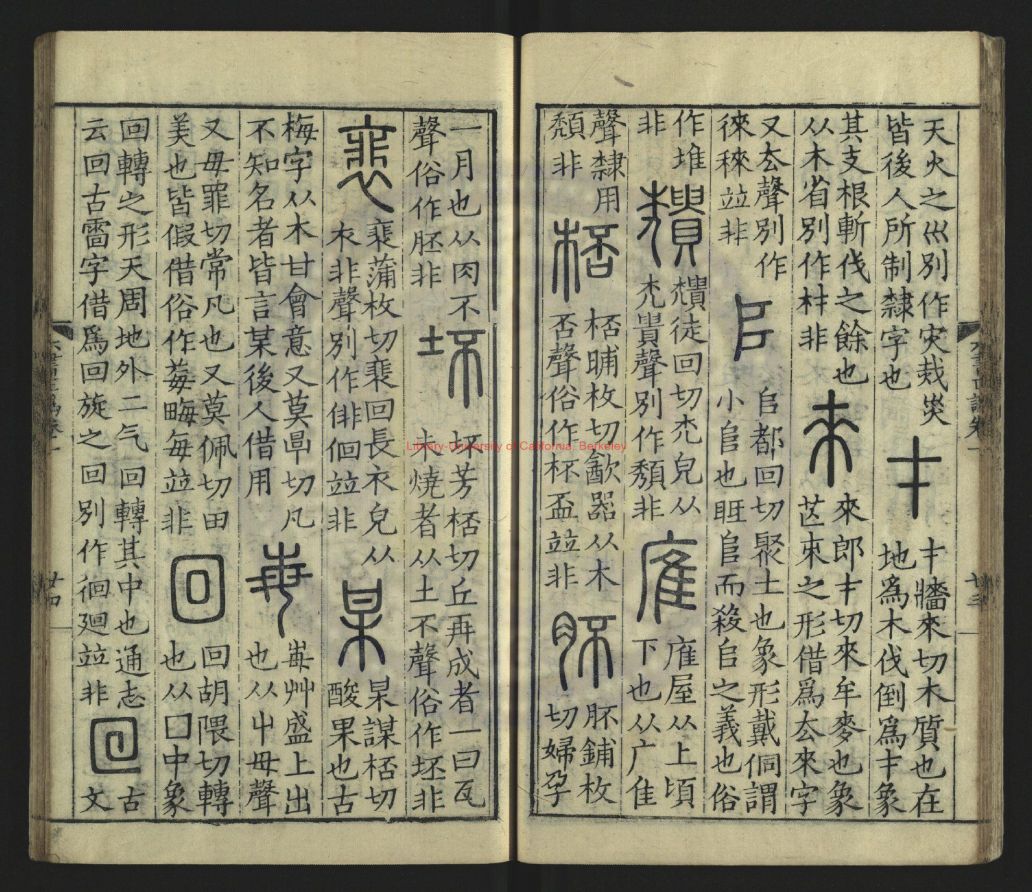 天火之巛別作灾烖災
皆後人所制隸字也
才
才牆來切木質也在
地爲木伐倒爲才象
其支根斬伐之餘也
从木省別作村非
來
來郎才切來牟麥也象
芒朿之形借爲去來字
又去聲別作
徠秾竝非
𠂤
𠂤都回切聚土也象形戴侗謂
小𨸏也𨸏而殺𠂤之義也俗
作堆
非
穨
穨徒回切秃皃从
秃貴聲別作頽非
㢈
㢈屋从上頃
下也从广隹
聲隸用
頹非
桮
桮晡枚切㱃器从木
否聲俗作杯盃竝非
肧
肧鋪枚
切婦孕
六書正譌卷一
廿三
一月也从肉不
聲俗作胚非
坏
坏芳桮切丘再成者一曰瓦
未燒者从土不聲俗作坯非
裵
裵蒲枚切裵回長衣皃从
衣非聲別作俳徊竝非
某
某謀桮切
酸果也古
梅字从木甘會意又莫厚切凡
不知名者皆言某後人借用
每
每艸盛上出
也从屮母聲
又母罪切常凡也又莫佩切田
美也皆假借俗作莓畮毎竝非
回
回胡隈切轉
也从囗中象
回轉之形天周地外二气回轉其中也通志
云回古雷字借爲回旋之回別作徊廻竝非
回
古
文
六書正譌卷一
廿四
Library-University of California, Berkeley